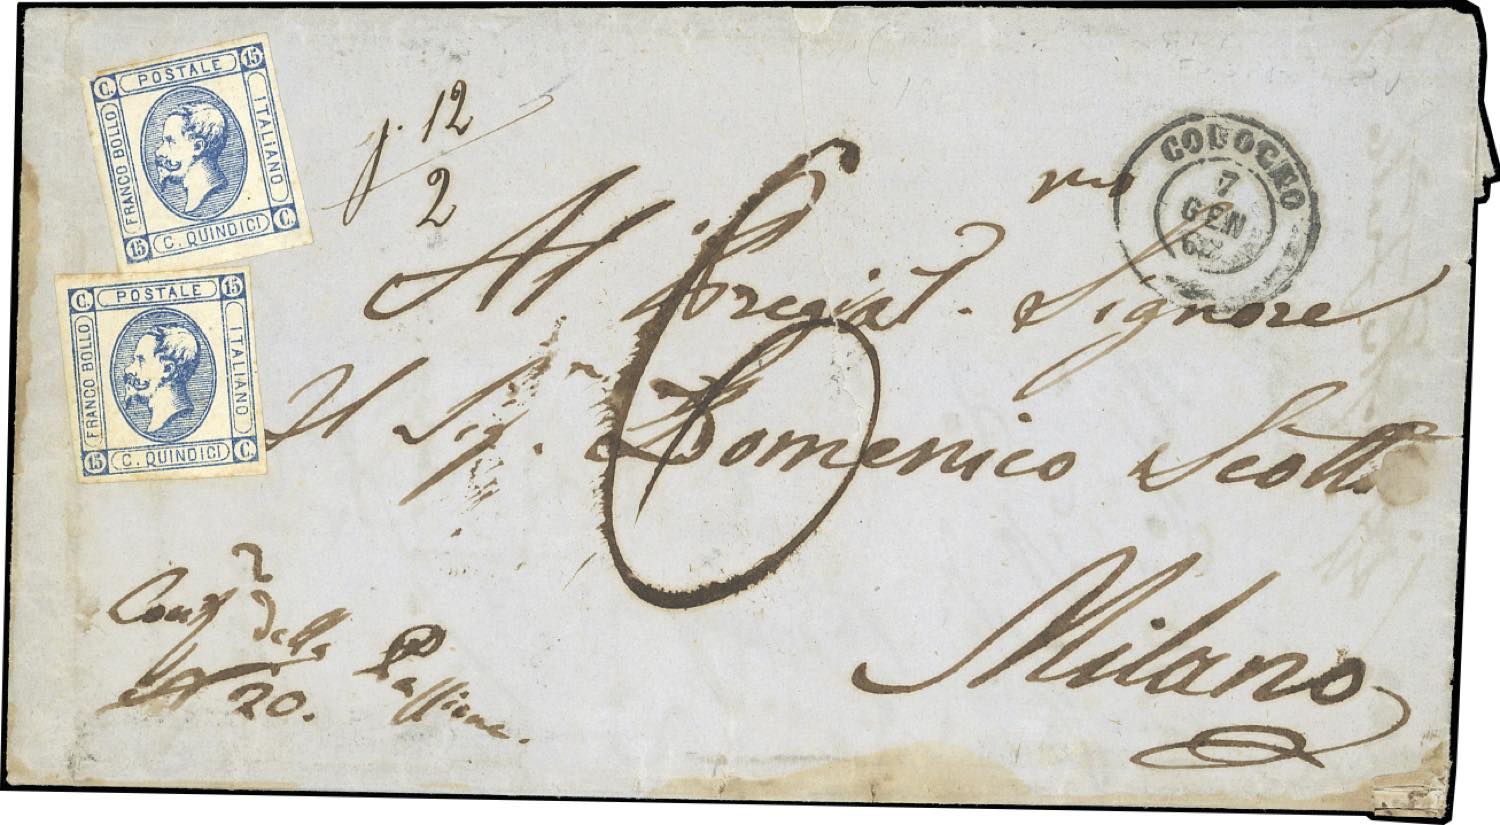 C. POSTALE 15
FRANCO BOLLO
ITALIANO
15 C. QUINDICI C.
C. POSTALE 15
FRANCO BOLLO
ITALIANO
15 C. QUINDICI C.
12
2
6
CODOGNO
7
GEN
63
Al Pregiat. mo Signore
Il Sig. r Domenico Scotti
Milano
della Passione
N 20.